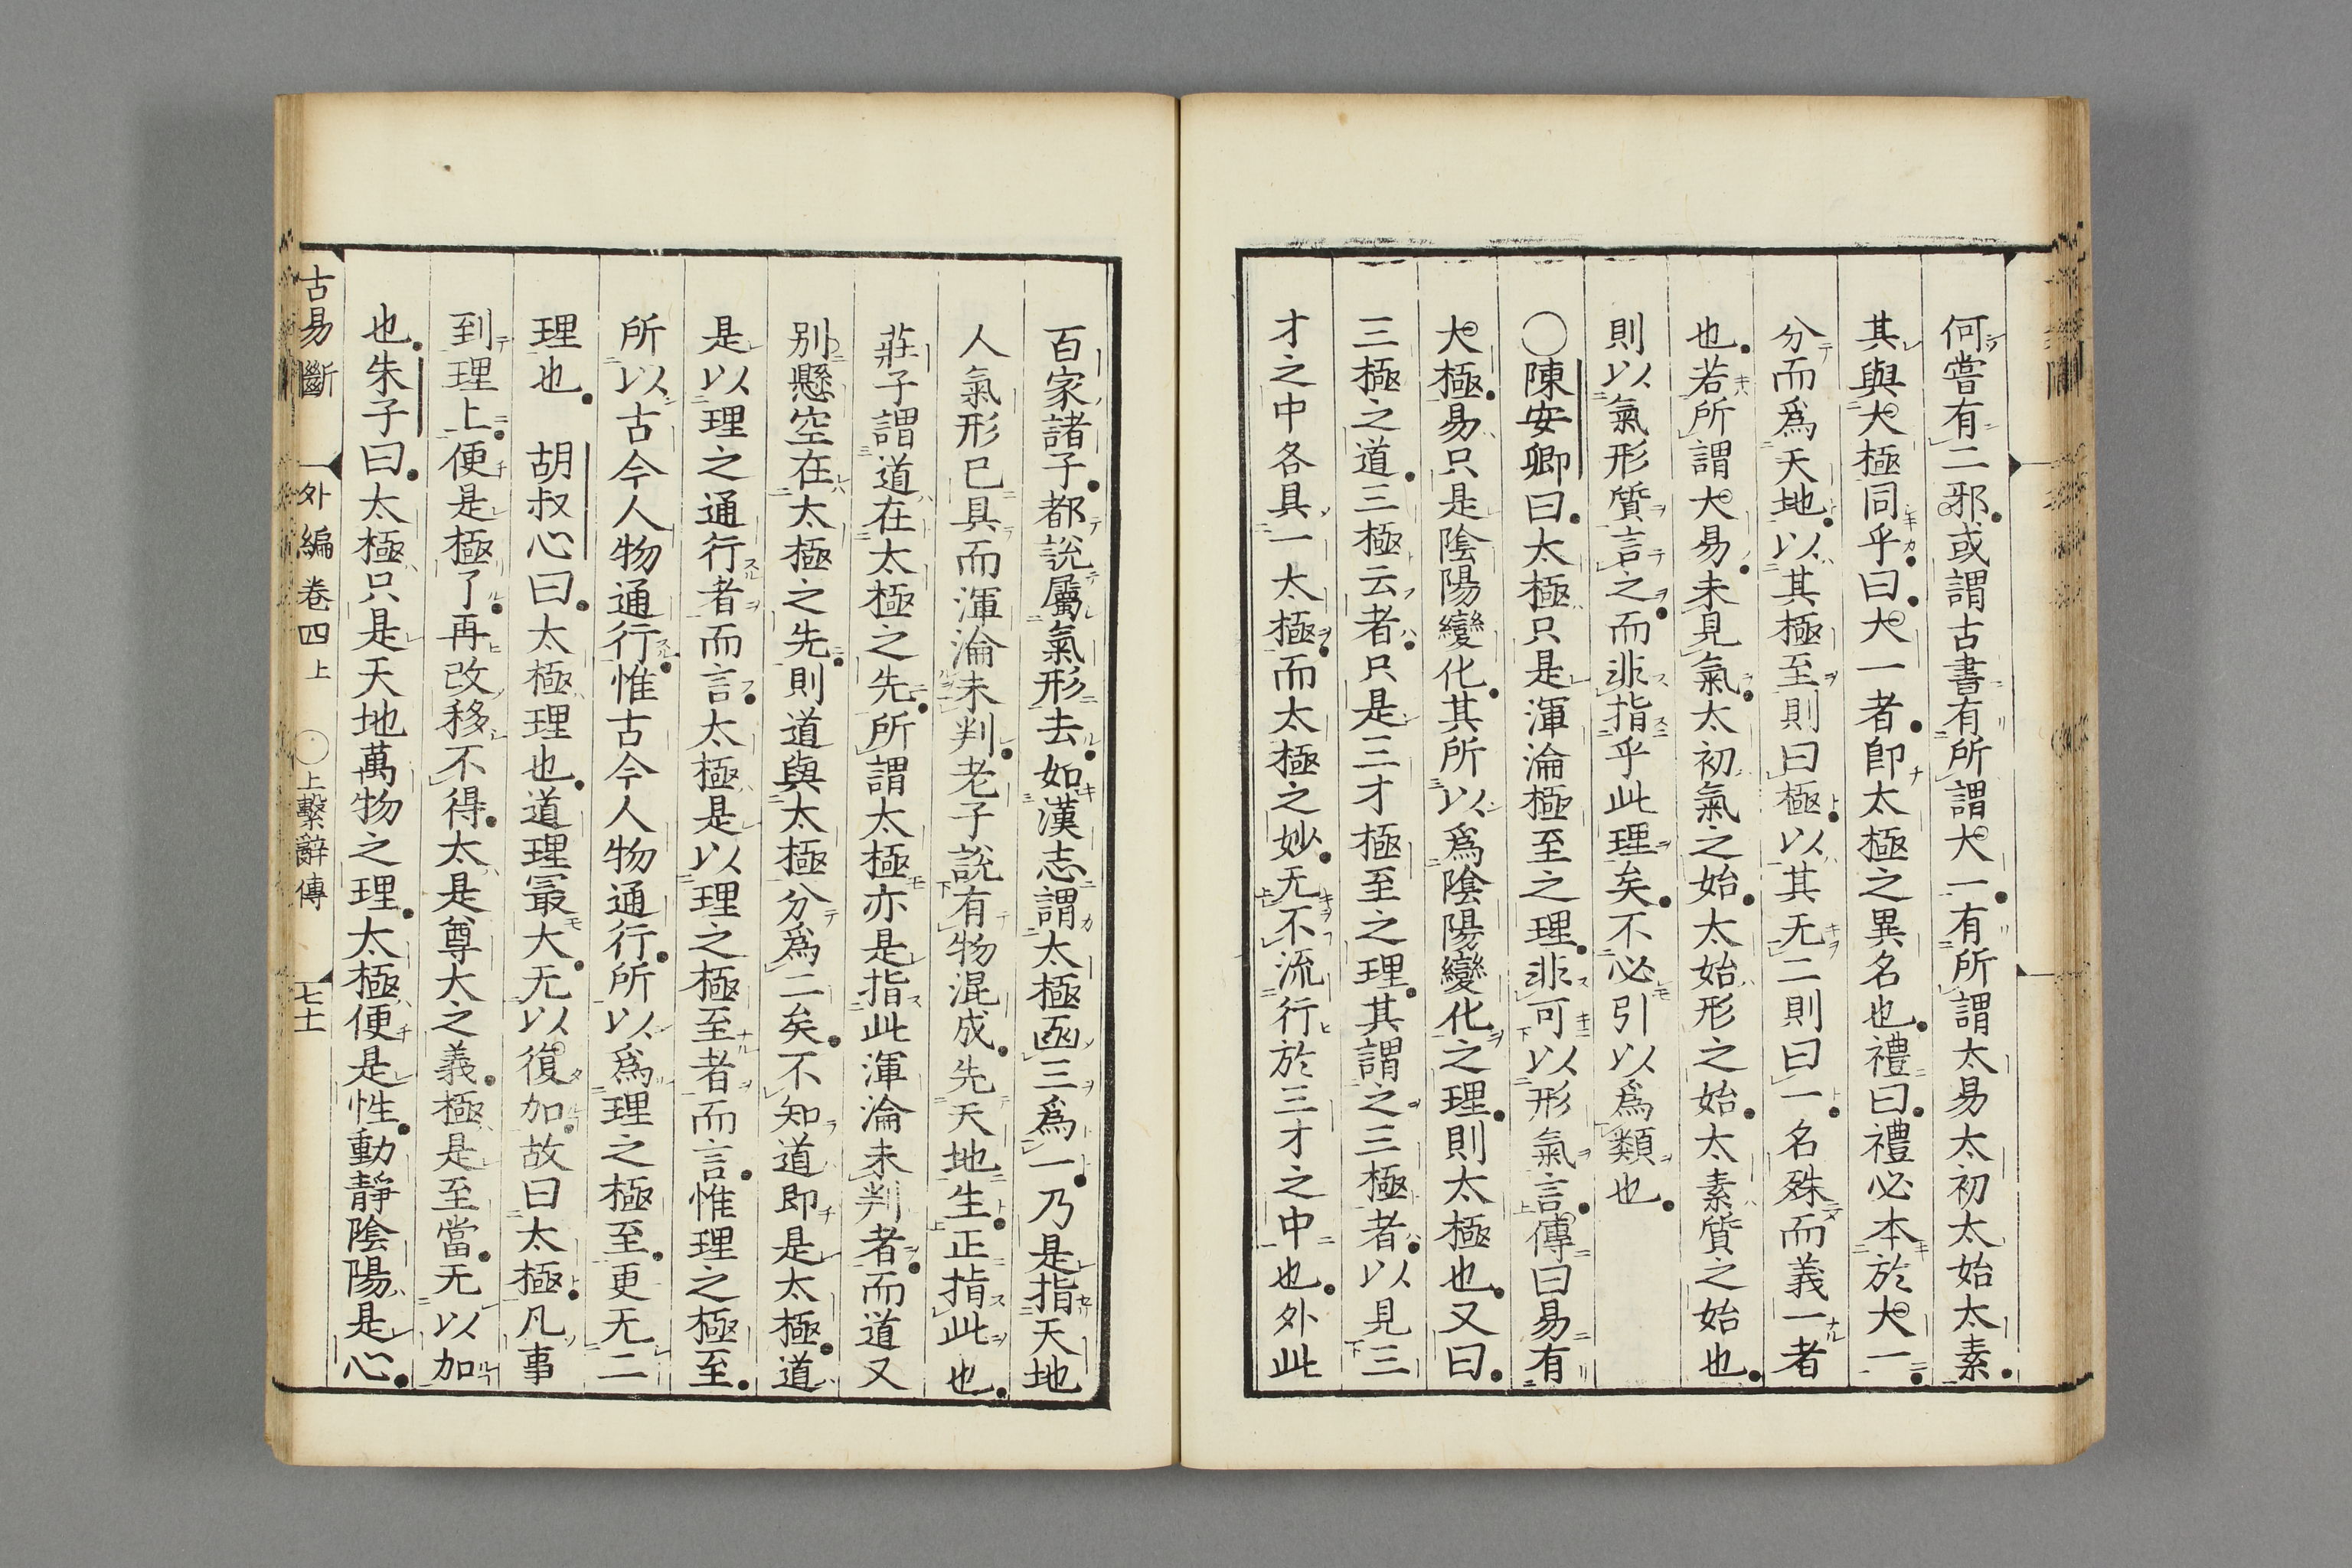 何嘗有二邪或謂古書有所謂大一有所謂太易太初太始太素
其與大極同乎曰大一者卽太極之異名也禮曰禮必本於大一
分而爲天地以其極至則曰極以其无二則曰一名殊而義一者
也若所謂大易未見氣太初氣之始太始形之始太素質之始也
則以氣形質言之而非指乎此理矣不必引以爲類也
〇陳安卿曰太極只是渾淪極至之理非可以形氣言傳曰易有
大極易只是陰陽變化其所以爲陰陽變化之理則太極也又曰
三極之道三極云者只是三才極至之理其謂之三極者以見三
才之中各具一太極而太極之妙无不流行於三才之中也外此
百家諸子都說屬氣形去如漢志謂太極函三爲一乃是指天地
人氣形已具而渾淪未判老子說有物混成先天地生正指此也
莊子謂道在太極之先所謂太極亦是指此渾淪未判者而道又
別懸空在太極之先則道與太極分爲二矣不知道即是太極道
是以理之通行者而言太極是以理之極至者而言惟理之極至
所以古今人物通行惟古今人物通行所以爲理之極至更无二
理也　胡叔心曰太極理也道理最大无以復加故曰太極凡事
到理上便是極了再改移不得太是尊大之義極是至當无以加
也朱子曰太極只是天地萬物之理太極便是性動靜陰陽是心
古易斷　外編卷四上　〇上繫辭傳　七十